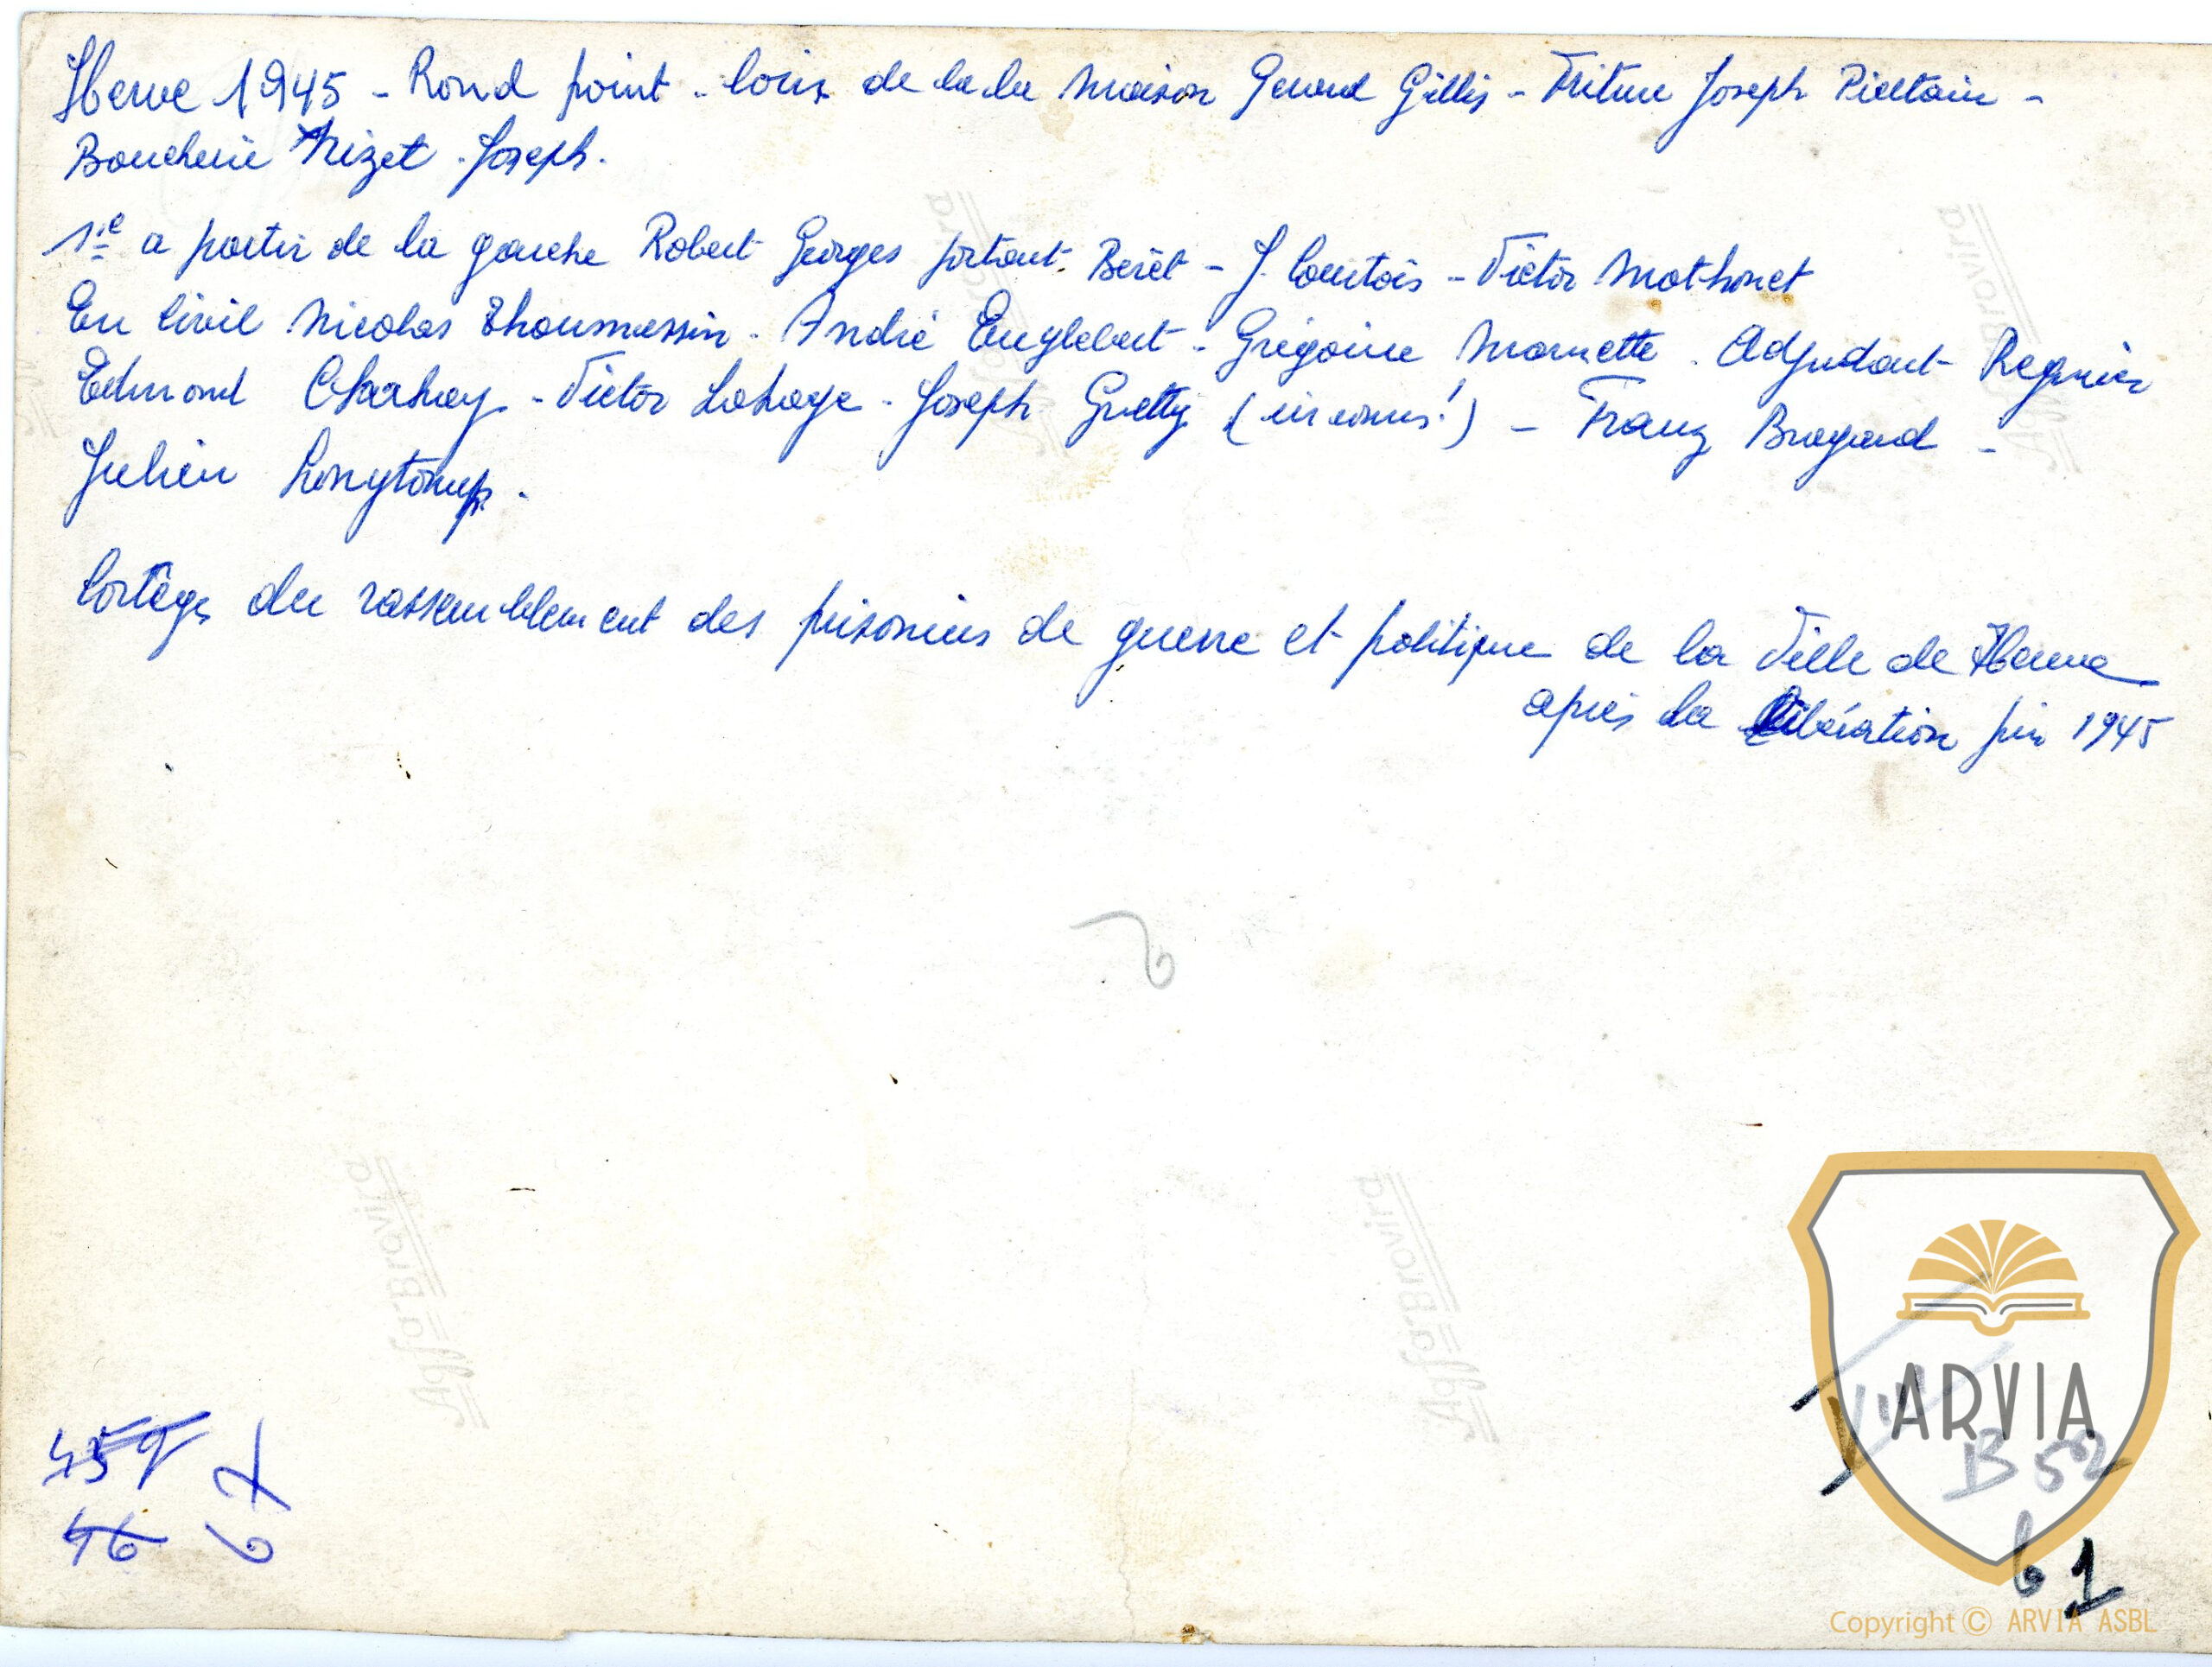 Herve 1945 - Rond point - loin de la la maison Gerard Gillis - Friture Joseph Pieltain -
Boucherie Nizet - Joseph.
1re a partir de la gauche Robert Georges portant Berêt - J. Courtois - Victor Mathonet
En Civil Nicolas Thoumessin - André Englebert - Grégoire Marnette - Adjudant Regnier
Edmond Charhay - Victor Lahaye - Joseph (inconnu!) - Franz Bragard -
Julien Longtomps.
Cortège du rassemblement des prisoniers de guerre et politique de la Ville de Herve
après la Libération juin 1945
Agfa-Brovira
Agfa-Brovira
Agfa-Brovira
Agfa-Brovira
ARVIA
B 52
61
459
46
Copyright © ARVIA ASBL